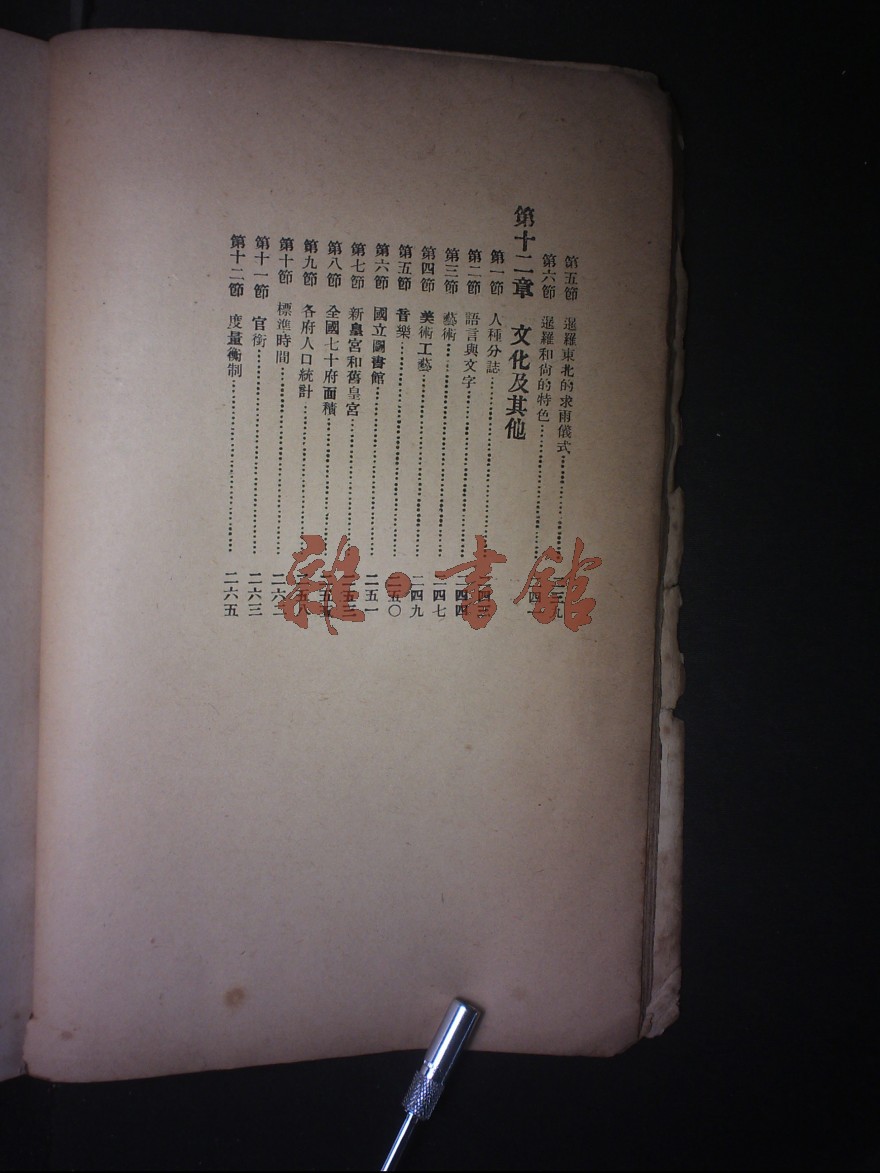 第五節 暹羅東北的求雨儀式……二三九
第六節 暹羅和尚的特色……二四
第十二章 文化及其他
第一節 人種分誌……二四
第二節 語言與文字……二四四
第三節 藝術……二四七
第四節 美術工藝……二四九
第五節 音樂……二五〇
第六節 國立圖書館……二五一
第七節 新皇宮和舊皇宮……二五三
第八節 全國七十府面積……二五五
第九節 各府人口統計……二五八
第十節 標準時間……二六二
第十一節 官銜……二六三
第十二節 度量衡制……二六五
雜·書館